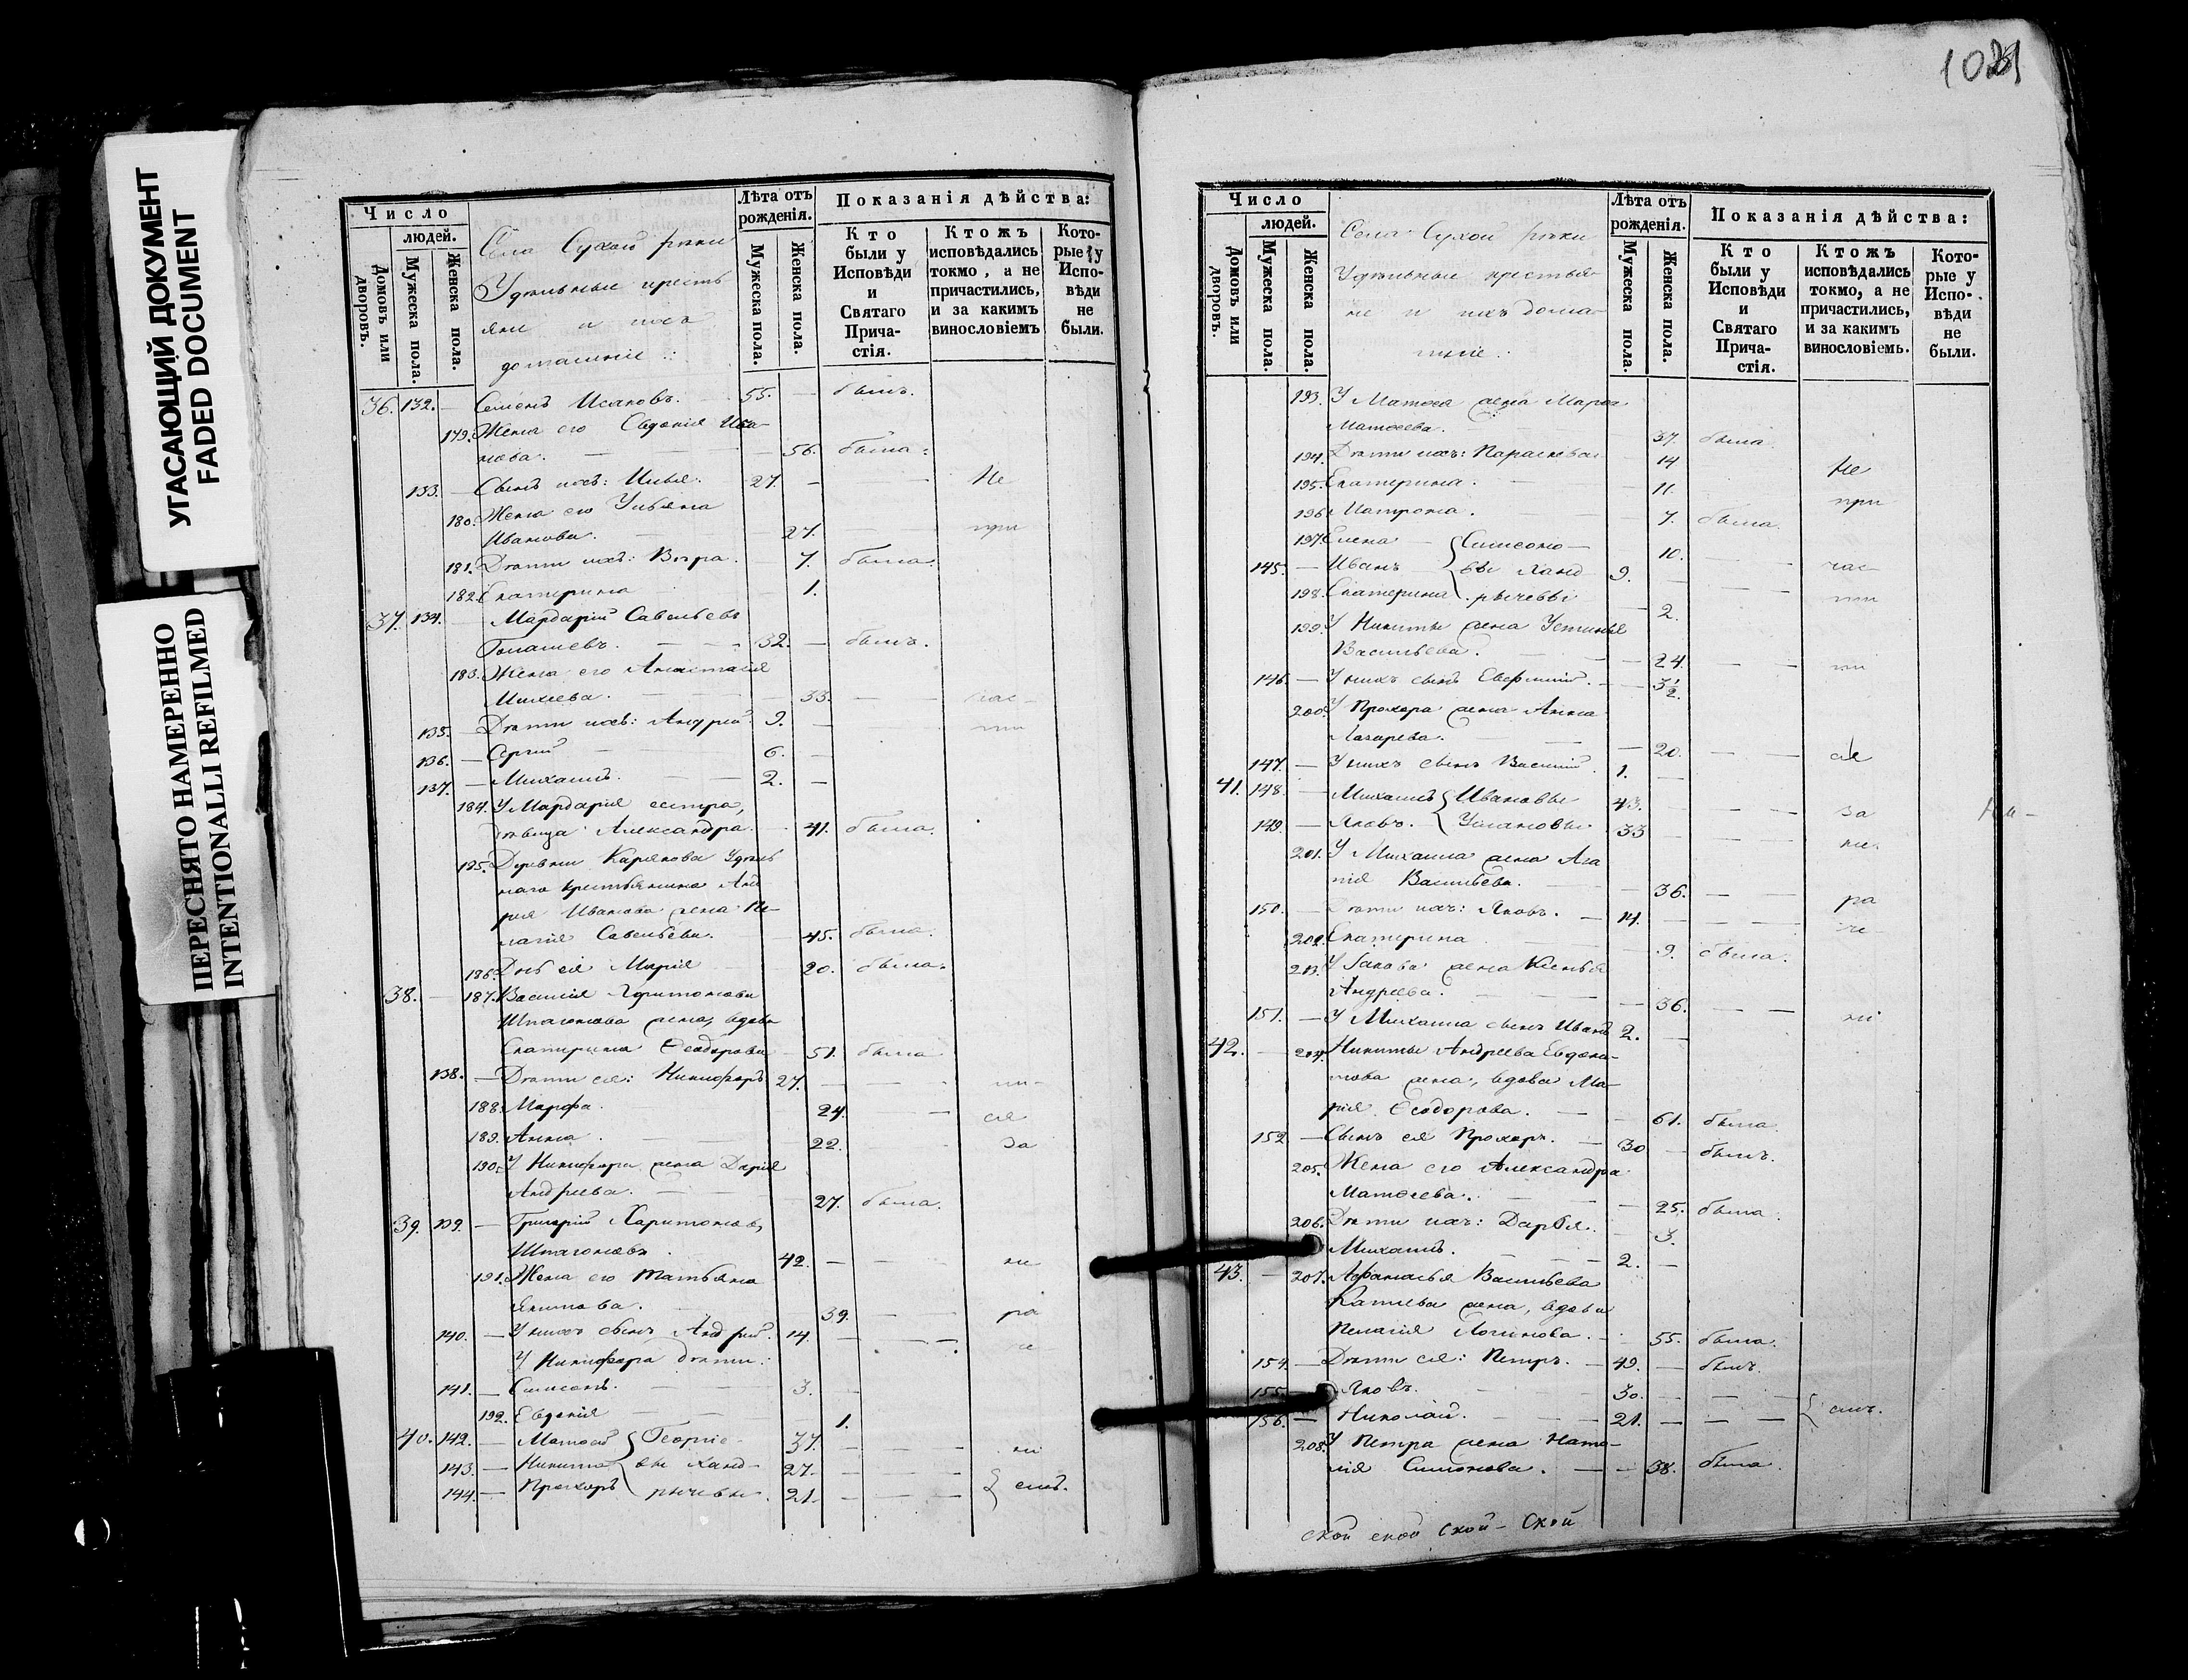 УГАСАЮЩИЙ ДОКУМЕНТ
FADED DOCUMENT
ПЕРЕСНЯТО НАМЕРЕННО
INTENTIONALLI REFILMED
Число
людей.
Домовъ или дворовъ.
Мужеска пола.
Женска пола.
Села Сухой рѣки
Удѣльные кресть
яне и ихъ
домашніе:
Лѣта отъ рожденія.
Мужеска пола.
Женска пола.
Показанія дѣйства:
Кто были у Исповѣди и Святаго Прича-стія.
Ктожъ исповѣдались токмо, а не причастились, и за какимъ винословіемъ
Кото-рые у Испо-вѣди не были.
36. 132. — Семенъ Исаковъ. 55. — былъ.
179. Жена его Евдокія Ива-
нова. — 56. была.
133. — Сынъ ихъ: Илья. 27. — — Не
180. Жена его Ульяна
Иванова. 27. — при
181. Дѣти ихъ: Вѣра. 7. была.
182. Екатерина 1.
37. 134. — Мардарій Савельевъ
32. — былъ.
183. Жена его Анастасія
Михеева. 33. — час-
135. — Дѣти ихъ: Андрей 9. — ти
136. — Сергій 6. —
137. — Михаилъ. 2. —
184. У Мардарія сестра,
дѣвица Александра. 41. была.
185. Деревни Карякова Удѣль
наго крестьянина Анд
рея Иванова жена Пе-
лагія Савельева. 45. была.
186. Дочь ея Марія 20. была.
38. — 187. Василія Харитонова
Шпагонова жена, вдова
Екатерина Ѳеодорова 51. была
138. — Дѣти ея: Никифоръ 27. — — ли-
188. Марфа. 24. — ся
189. Анна. 22. за
190. У Никифора жена Дарія
Андреева. 27. была.
39. 139. — Григорій Харитоновъ
Шпагоновъ. 42. — не
191. Жена его Татьяна
39. — ра
140. — У нихъ сынъ Андрей. 14. — — че
У Никифора дѣти:
141. — Симеонъ. 3. —
192. Евдокія 1.
40. 142. — Матѳей Георгіе- 37. — — ні
143. — Никита вы Ханд- 27. — —
144. — Прохоръ рычевы. 21. — — емъ.
1021
Число
людей.
Домовъ или дворовъ.
Мужеска пола.
Женска пола.
Села Сухой рѣки
Удѣльные крестья-
не и ихъ домаш-
ніе:
Лѣта отъ рожденія.
Мужеска пола.
Женска пола.
Показанія дѣйства:
Кто были у Исповѣди и Святаго Прича-стія.
Ктожъ исповѣдались токмо, а не причастились, и за какимъ винословіемъ.
Кото-рые у Испо-вѣди не были.
193. У Матѳея жена Марѳа
Матѳеева. 37. была.
194. Дѣти ихъ: Параскева 14 Не
195. Екатерина. 11. при
196. Матрона. 7. была.
197. Елена Симеоно- 10.
145. — Иванъ вы Ханд 9. — час-
198. Екатерина рычевы — 2. ти
199. У Никиты жена Устинья
Васильева. — 24. — — ли
146. — У нихъ сынъ — 3½.
200. У Прохора жена Анна
Лазарева. — 20. — — ся
147. — У нихъ сынъ Василій. 1. —
41. 148. — Михаилъ Ивановы 43. — — за
149. — Яковъ. 33 — не-
201. У Михаила жена Ага
пія Васильева. — 36. — ра
150. — Дѣти ихъ: Яковъ. — 14. — — че-
202. Екатерина 9. была.
203. У Якова жена Ксенья
Андреева. — 36. — — ні
151. — У Михаила сынъ Иванъ 2. —
42. — 204. Никиты Андреева Евдоки-
мова жена, вдова Ма-
рія Ѳеодорова. — 61. была.
152 — Сынъ ея Прохоръ. — 30 — былъ.
205. Жена его Александра
Матѳеева. — 25. была.
206. Дѣти ихъ: Дарья. — 3.
Михаилъ. 2. —
43. — 207. Афанасья Васильева
жена, вдова
Пелагія Логинова. — 55. была.
154. — Дѣти ея: Петръ. — 49. — былъ.
155. — Яковъ. 30. — —
156. — Николай. 21. — — емъ.
208. У Петра жена Ната-
лія Симонова. — 38. была.
ской ской ской - Ской